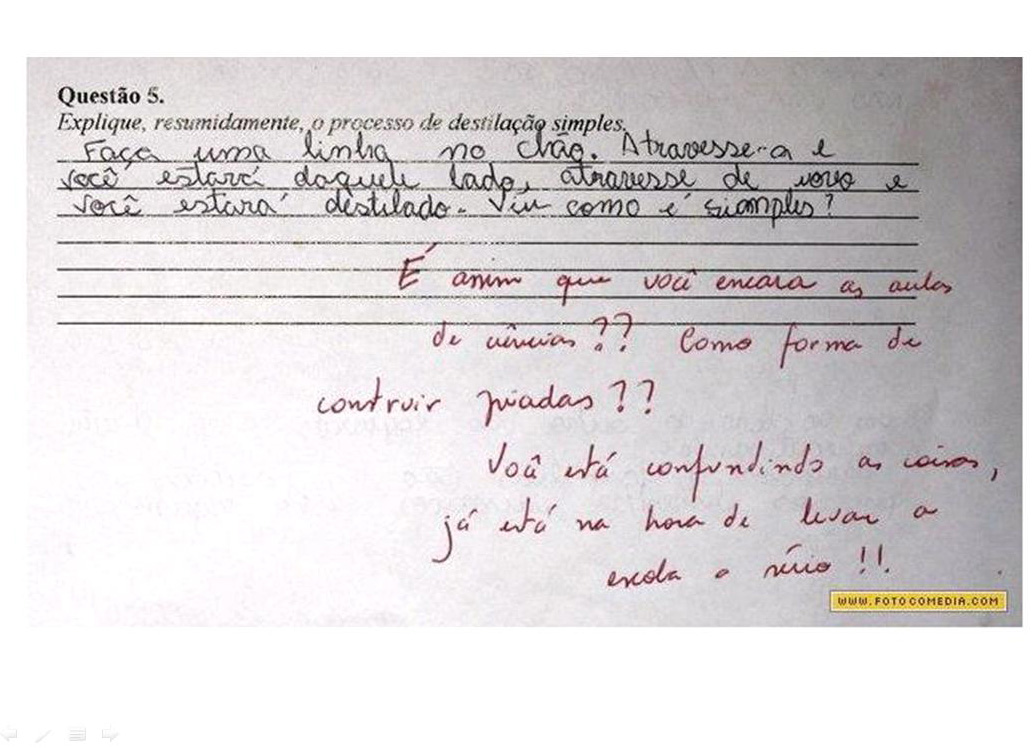 Questão 5.
Explique, resumidamente, o processo de destilação simples.
Faça uma linha no chão. Atravesse-a e
você estará daquele lado, atravesse de novo e
você estará destilado. Viu como é siomples?
É assim que você encara as aulas
de ciências?? Como forma de
construir piadas??
Você está confundindo as coisas,
já está na hora de levar a
escola a sério!!
WWW.FOTOCOMEDIA.COM